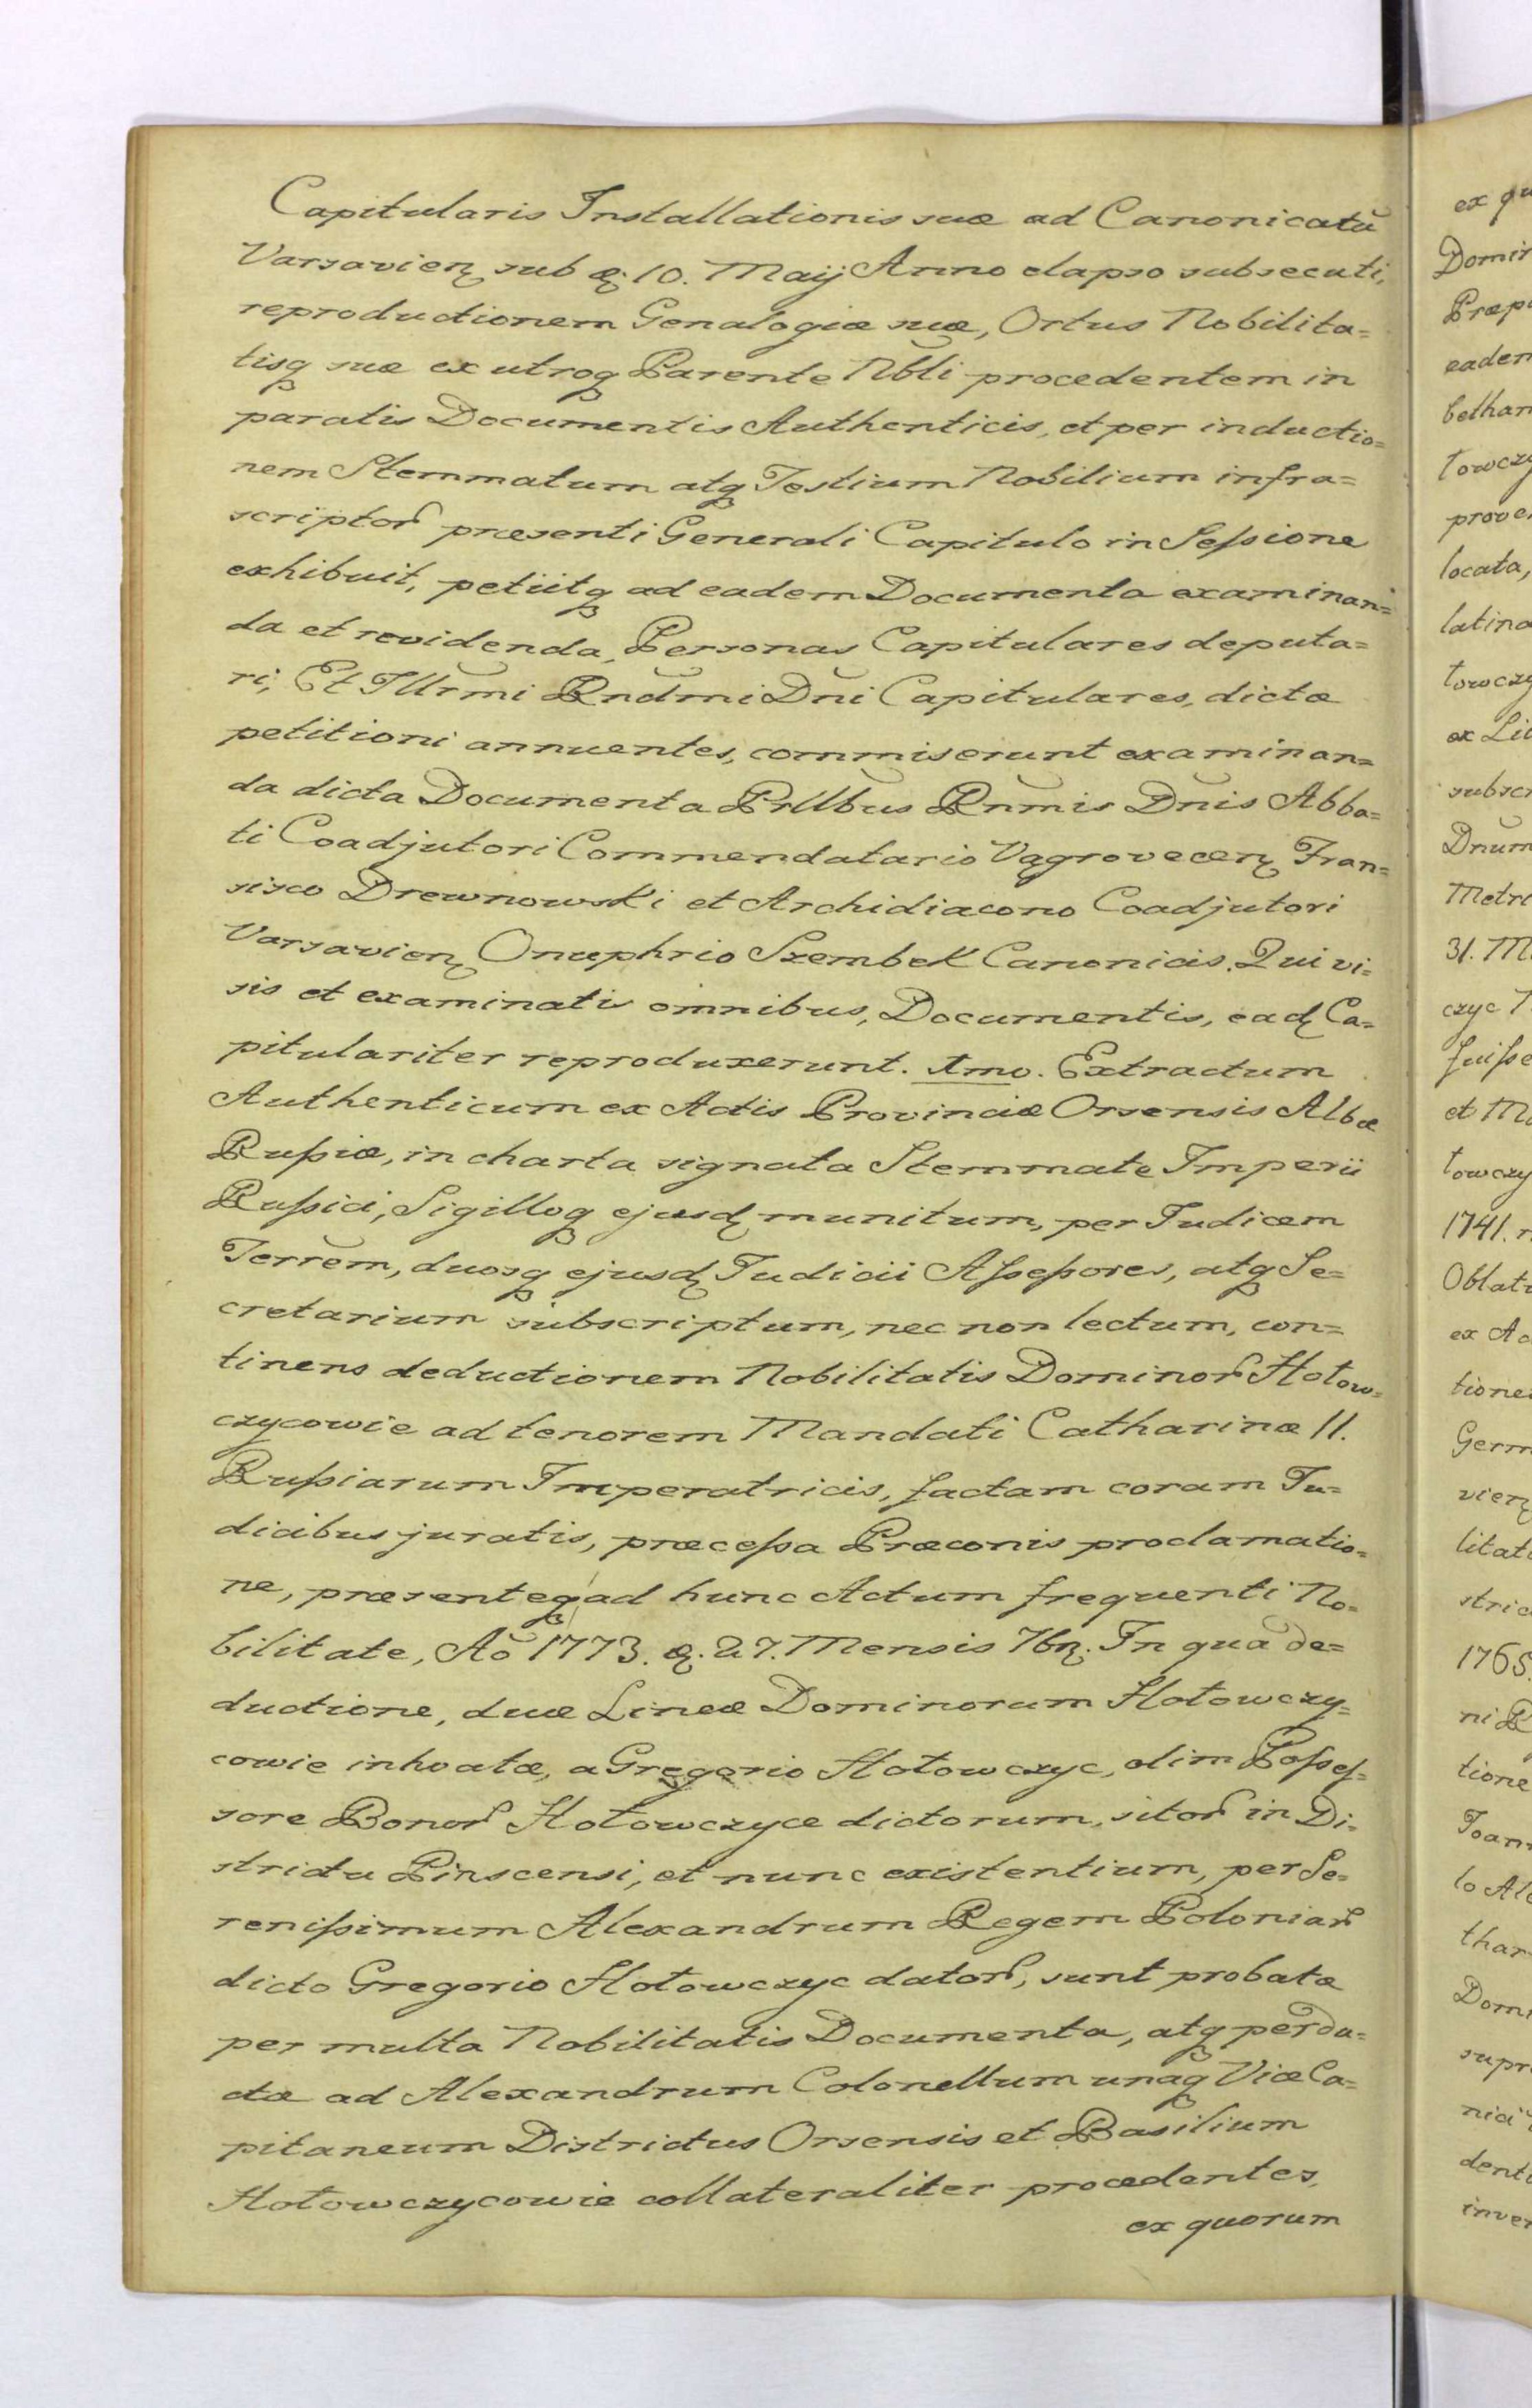 Capitularis Installationis suæ ad Canonicatū
Varsavien̨ sub d. 10. Maij Anno elapso subsecuti,
reproductionem Genalogiæ suæ, Ortus Nobilita=
tisq suæ ex utroq Parente Nbli procedentem in
paratis Documentis Authenticis, et per inductio=
nem Stemmatum atq Testium Nobilium infra=
scriptor præsenti Generali Capitulo in Seſsione
exhibuit, petiitq ad eadem Documenta examinan=
da et revidenda, Personas Capitulares deputa=
ri, Et Illrmi Rndmi Dni Capitulares, dictæ
petitioni annuentes, commiserunt examinan=
da dicta Documenta PrIllbus Rnmis Dnis Abba=
ti Coadjutori Commendatario Vągrovecen̨ Fran=
sisco Drewnowski et Archidiacono Coadjutori
Varsavien̨ Onuphrio Szembek Canonicis. Qui vi=
sis et examinatis omnibus, Documentis, ead Ca=
pitulariter reproduxerunt. 1mo. Extractum
Authenticum ex Actis Provinciæ Orsensis Albæ
Ruſsiæ, in charta signata Stemmate Imperii
Ruſsici, Sigilloq ejusd munitum, per Judicem
Terrem, duosq ejusd Judicii Aſseſsores, atq Se=
cretarium subscriptum, nec non lectum, con=
tinens deductionem Nobilitatis Dominor Hołow=
czycowie ad tenorem Mandati Catharinæ II.
Ruſsiarum Imperatricis, factam coram Ju=
dicibus juratis, præceſsa Præconis proclamatio=
ne, præsenteq ad hunc Actum frequenti No=
bilitate, Aō 1773. d. 27. Mensis 7bn̨. In qua de=
ductione, duæ Lineæ Dominorum Hołowczy=
cowie inhoatæ, a Gregorio Hołowczyc, olim Poſseſ=
sore Bonor Hołowczyce dictorum, sitor in Di=
strictu Pinscensi, et nunc existentium, per Se=
reniſsimum Alexandrum Regem Poloniar
dicto Gregorio Hołowczyc dator, sunt probatæ
per multa Nobilitatis Documenta, atq perdu=
ctæ ad Alexandrum Colonellum unaq Vice Ca=
pitaneum Districtus Orsensis et Basilium
Hołowczycowie collateraliter procedentes,
ex quorum
ex qu
Domin
Præp
eadem
bethan
łowczy
prove
locata,
latina
łowczy
ex Li
subscr
Dnum
Metri
31. M
czyc
fuiſse
et M
łowczy
1741.
Oblat
ex Ac
tione
Germ
vien̨
litat
stric
1765.
ni
tione
Joan
lo Al
thar
Dom
supr
nici
denti
inve